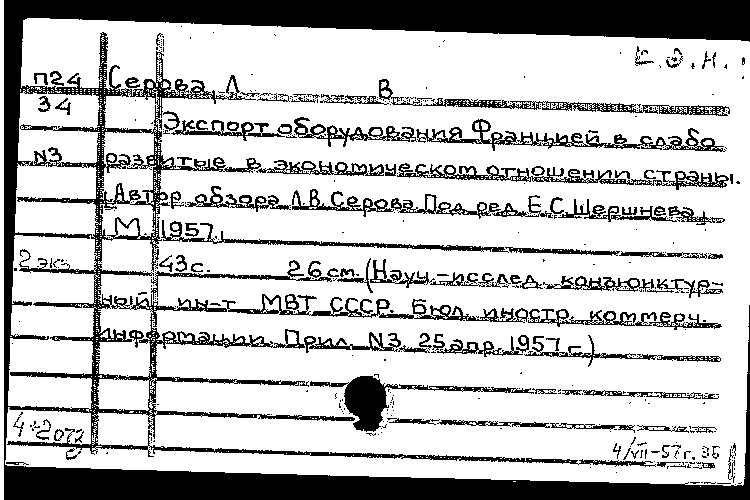 П24 Серова, Л В
34
Экспорт оборудования Францией в слабо
N3 развитые в экономическом отношении страны.
[Автор обзора Л.В. Серова. Под ред. Е.С. Шершнева]
[М. 1957.]
2 экз. 43с. 26 см. (Науч.-исслед. конъюнктур-
ный ин-т МВТ СССР. Бюл. иностр. коммерч.
информации. Прил. N3. 25 апр. 1957 г.)
4/VII-57г.